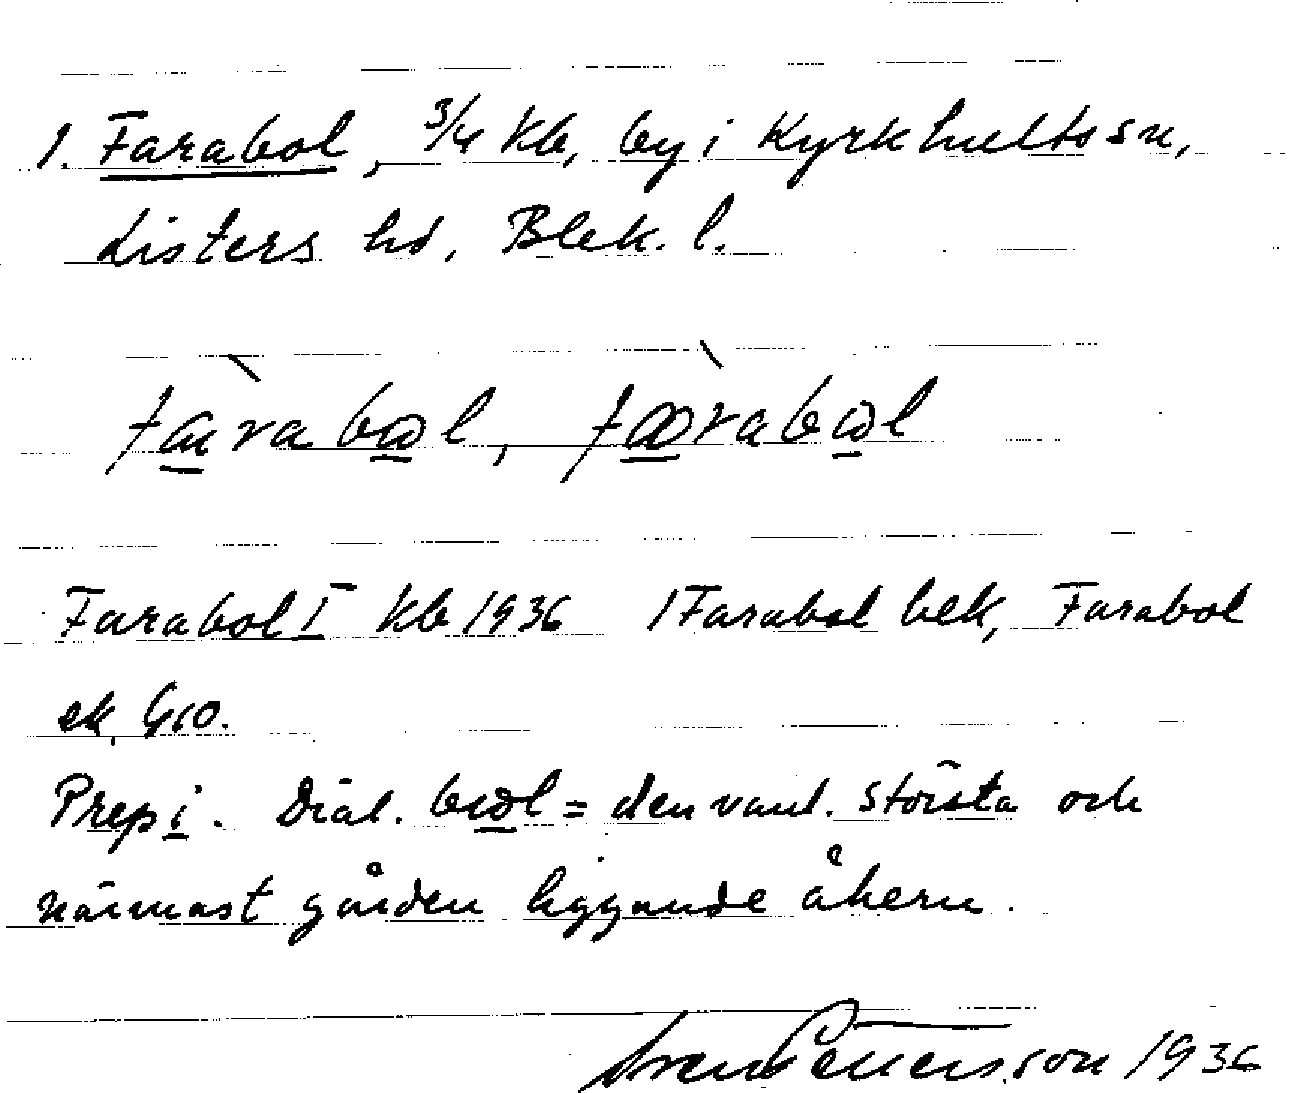 1. Farabol, 3/4 kb, by i Kyrkhults sn,
Listers hd, Blek. l.
Farabol I kb 1936 / Farabol bek, Farabol
ek, G10.
Prep i. Dial. bωl = den vanl. största och
närmast gården liggande åkern.
Sven Pettersson 1936